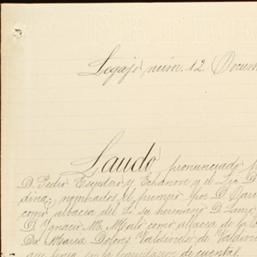 Legajo núm. 12 Docum
Laudo pronunciado
D. Pedro Escudero y Echánove y el Lic. D.
dino; nombrados el primero por D.
como albacea del Sr. su hermano D.
D. Ignacio M. Malo como albacea de la
Da. Maria Dolores Valdivielso de Valdivi
que tenia en la de cuentas